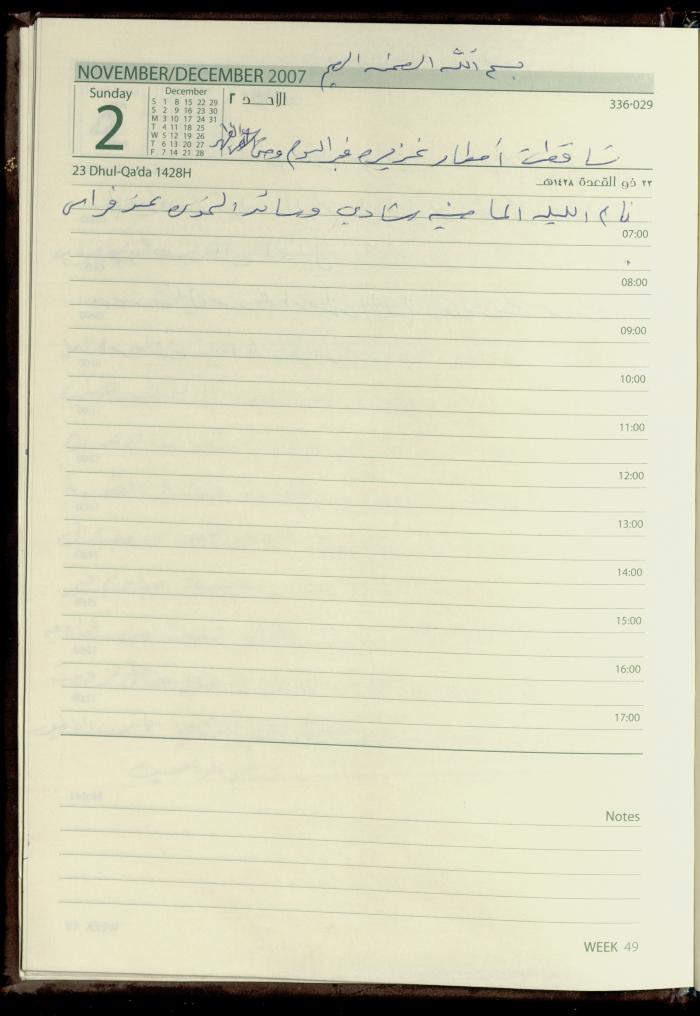 بسم الله الرحمن الرحيم
NOVEMBER/DECEMBER 2007
Sunday
2
December
S 1 8 15 22 29
S 2 9 16 23 30
M 3 10 17 24 31
T 4 11 18 25
W 5 12 19 26
T 6 13 20 27
F 7 14 21 28
الأحـــد ٢
336-029
تساقطت أمطار غزيره فجر اليوم
23 Dhul-Qa'da 1428H
٢٣ ذو القعدة ١٤٢٨هـ
نام الليله الماضيه شادي وسائد
07:00
08:00
09:00
10:00
11:00
12:00
13:00
14:00
15:00
16:00
17:00
Notes
WEEK 49